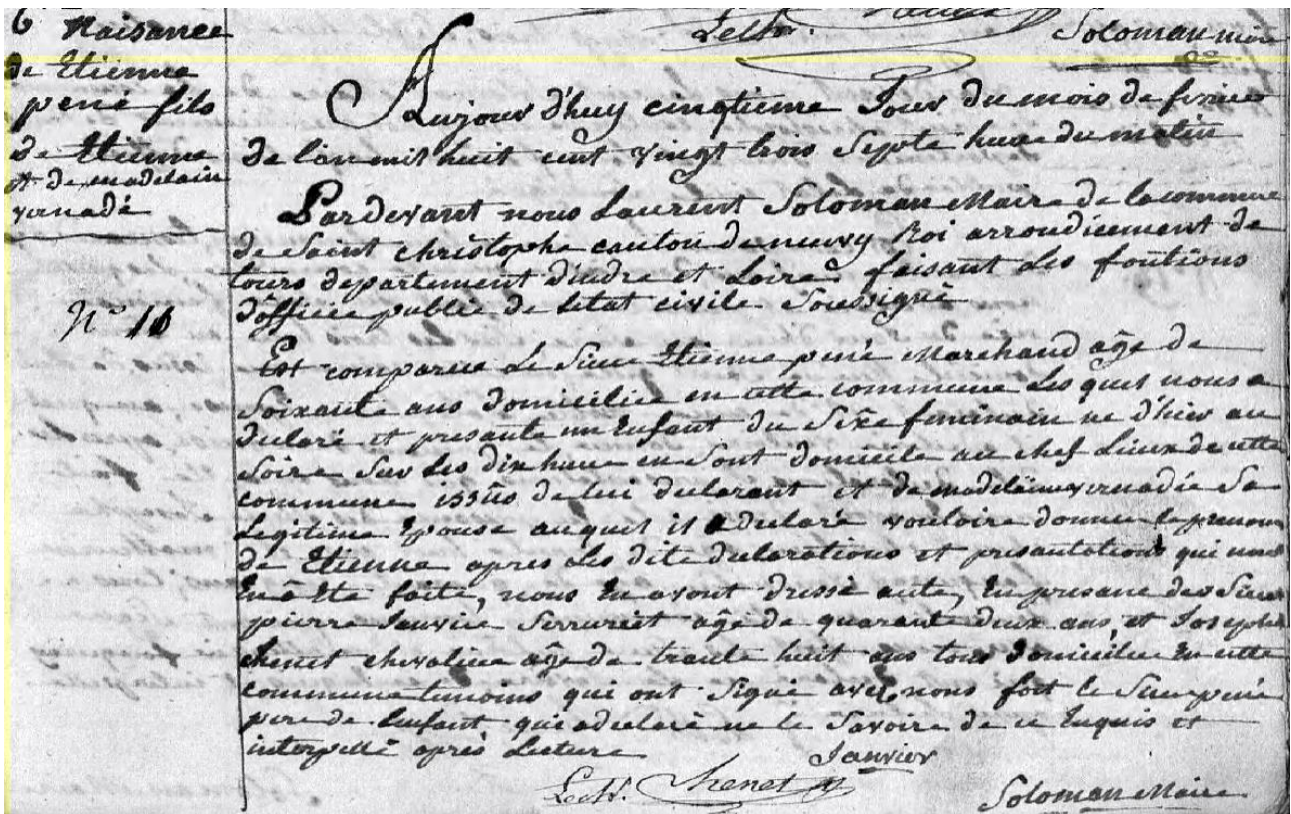 Lecth.
Soloman maire
6 Naisance
de Etienne
pené fils
de Etienne
et de madelain
vernadé
N° 16
Aujour d'huy cinqtieme Jour du mois de fevrier
de l'an mil huit cent vingt trois Septe heure du matin
Pardevant nous Laurent Soloman Maire de la commune
de Saint christophe canton de neuvy Roi arrondicement de
tours departement d'indre et Loire, faisant Les fontions
d'officie publie de letat civile Soussigné
Est comparue Le Sieur Etienne pené Marchand âge de
Soixante ans domicilie en cette commune Les quel nous a
declaré et presante un Enfant du Sexe feminain ne d'hier au
Soire Sur Les dix heure en Sont domicile au chef Lieux de cette
commune issûs de lui declarant et de madelaine vernadée Sa
Legitime Epouse auquel il a declaré vouloire donner le prenom
de Etienne apres Les dite declarations et presantations qui nous
En â Ete faite, nous En avont dressé acte, En presane des Sieur
pierre Janvier Serrureit âge de quarante deux ans, et Joseph
chenet chevalier âge de trante huit ans tous domicilie En cette
commune temoins qui ont Signé avec nous fort le Sieur pené
pere de Lenfant qui a declaré ne le Savoire de ce Enquis et
interpellé après Lecture
Janvier
Lecth. Chenet
Soloman Maire